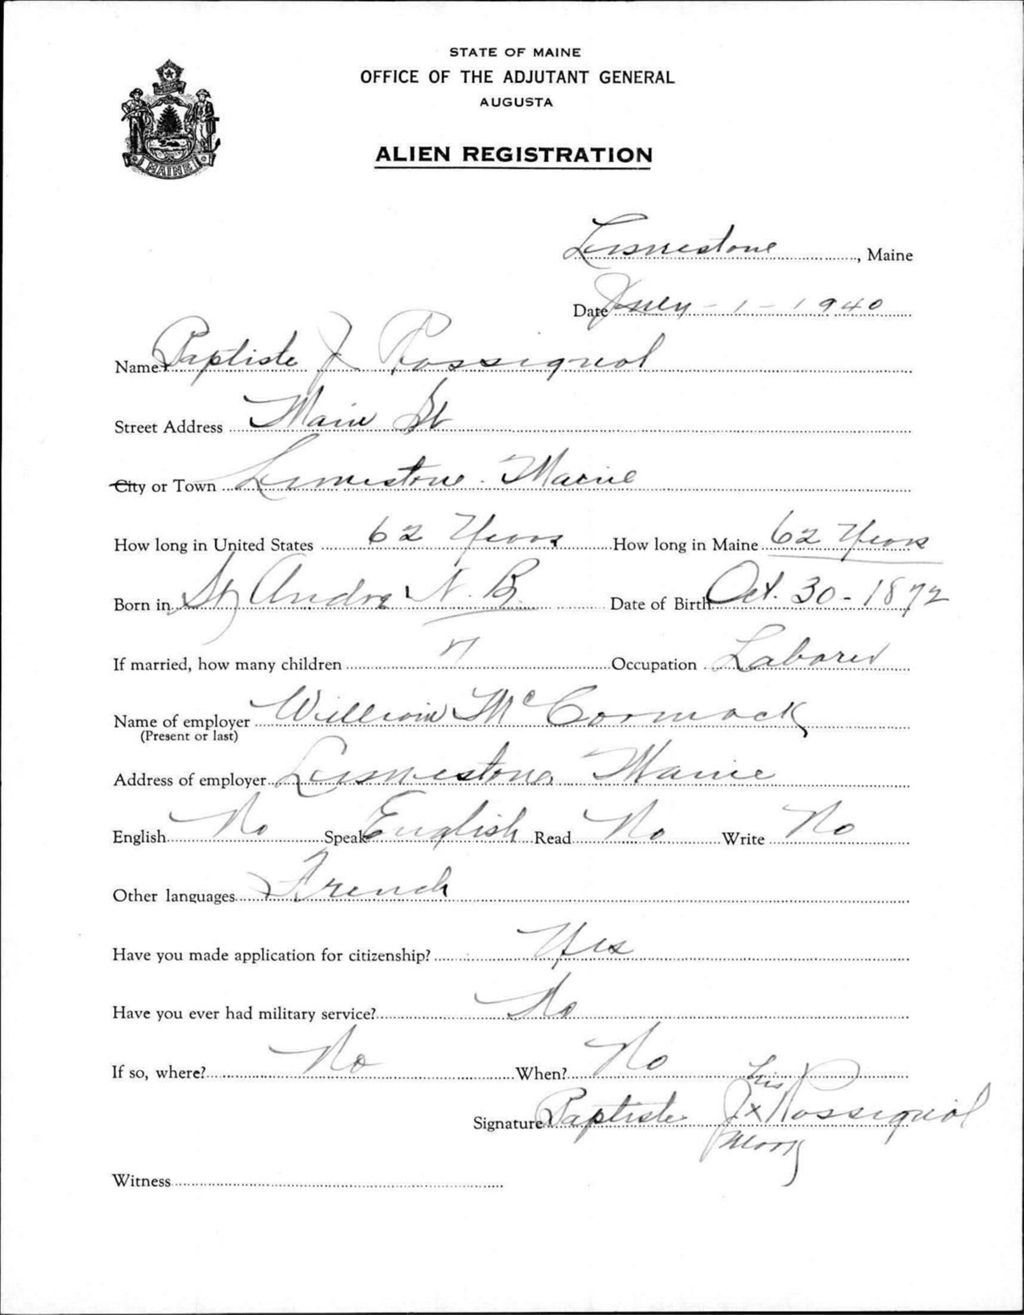 STATE OF MAINE
OFFICE OF THE ADJUTANT GENERAL
AUGUSTA
MAINE
ALIEN REGISTRATION
Limestone, Maine
Date July - 1 - 1940
Name Baptiste J Rossignol
Street Address Main St
City or Town Limestone - Maine
How long in United States 62 Years How long in Maine 62 Years
Born in St Andre N. B. Date of Birth Oct. 30 - 1872
If married, how many children 7 Occupation Laborer
Name of employer William McCormack
(Present or last)
Address of employer Limestone, Maine
English No Speak English Read No Write No
Other languages French
Have you made application for citizenship? Yes
Have you ever had military service? No
If so, where? No When? No
his
Signature Baptiste J x Rossignol
mark
Witness